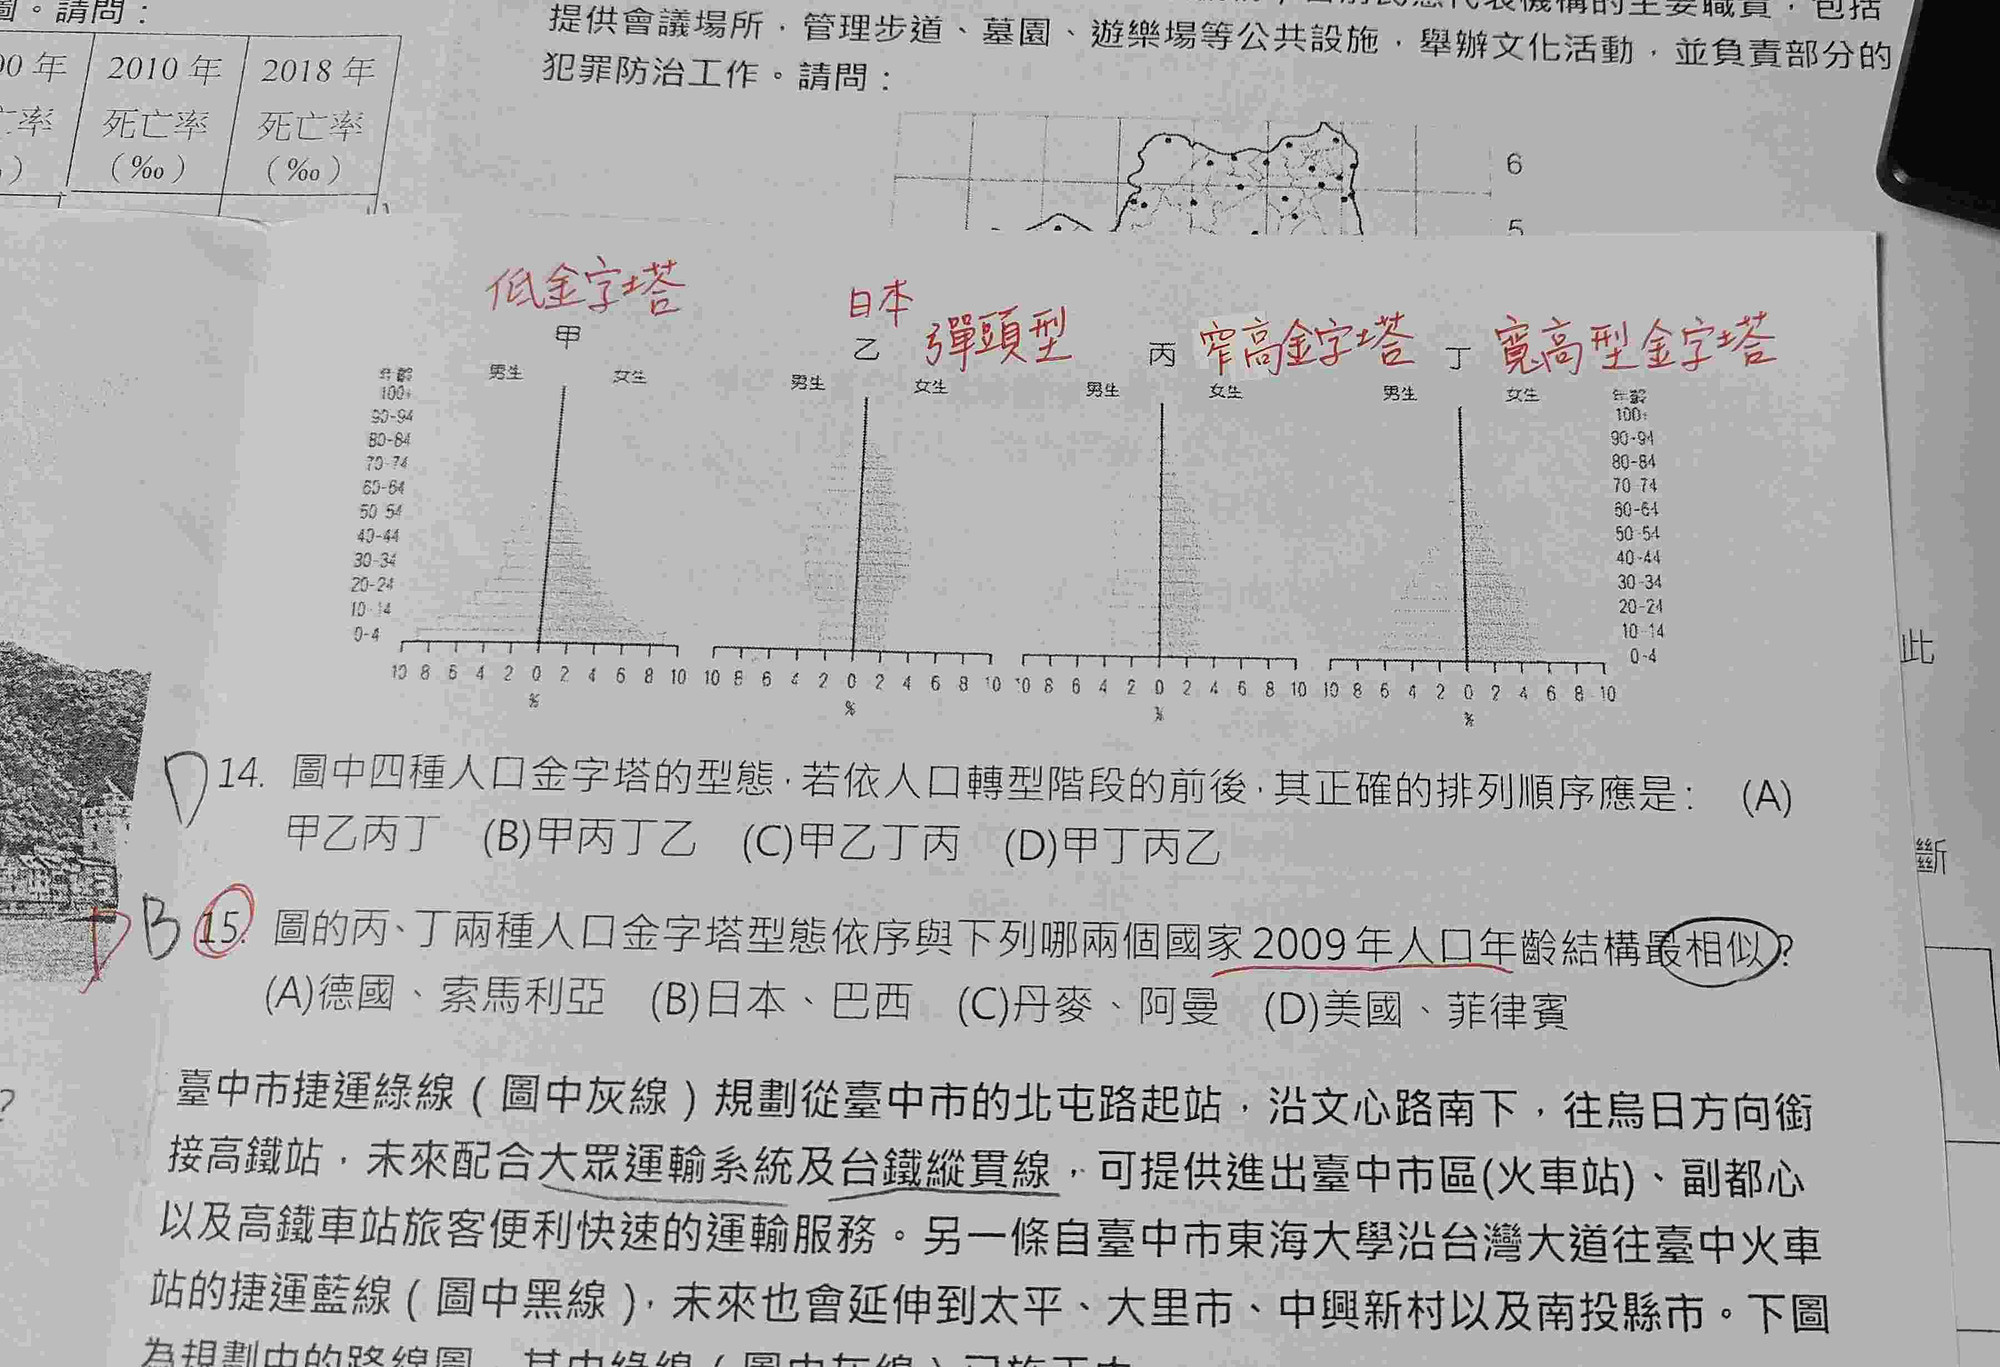 圖。請問：
提供會議場所，管理步道、墓園、遊樂場等公共設施，舉辦文化活動，並負責部分的
犯罪防治工作。請問：
00年 2010年 2018年
亡率 死亡率 死亡率
） （‰） （‰）
6
5
低金字塔 日本 彈頭型 窄高金字塔 寬高型金字塔
甲 乙 丙 丁
年齡 男生 女生 男生 女生 男生 女生 男生 女生 年齡
100+ 100+
90-94 90-94
80-84 80-84
70-74 70-74
60-64 60-64
50-54 50-54
40-44 40-44
30-34 30-34
20-24 20-24
10-14 10-14
0-4 0-4
10 8 6 4 2 0 2 4 6 8 10 10 8 6 4 2 0 2 4 6 8 10 10 8 6 4 2 0 2 4 6 8 10 10 8 6 4 2 0 2 4 6 8 10
% % % %
D 14. 圖中四種人口金字塔的型態，若依人口轉型階段的前後，其正確的排列順序應是： (A)
甲乙丙丁 (B)甲丙丁乙 (C)甲乙丁丙 (D)甲丁丙乙
D B 15. 圖的丙、丁兩種人口金字塔型態依序與下列哪兩個國家2009年人口年齡結構最相似？
(A)德國、索馬利亞 (B)日本、巴西 (C)丹麥、阿曼 (D)美國、菲律賓
臺中市捷運綠線（圖中灰線）規劃從臺中市的北屯路起站，沿文心路南下，往烏日方向銜
接高鐵站，未來配合大眾運輸系統及台鐵縱貫線，可提供進出臺中市區(火車站)、副都心
以及高鐵車站旅客便利快速的運輸服務。另一條自臺中市東海大學沿台灣大道往臺中火車
站的捷運藍線（圖中黑線），未來也會延伸到太平、大里市、中興新村以及南投縣市。下圖
為規劃中的路線圖，其中綠線（圖中灰線）已施工中
?
此
斷